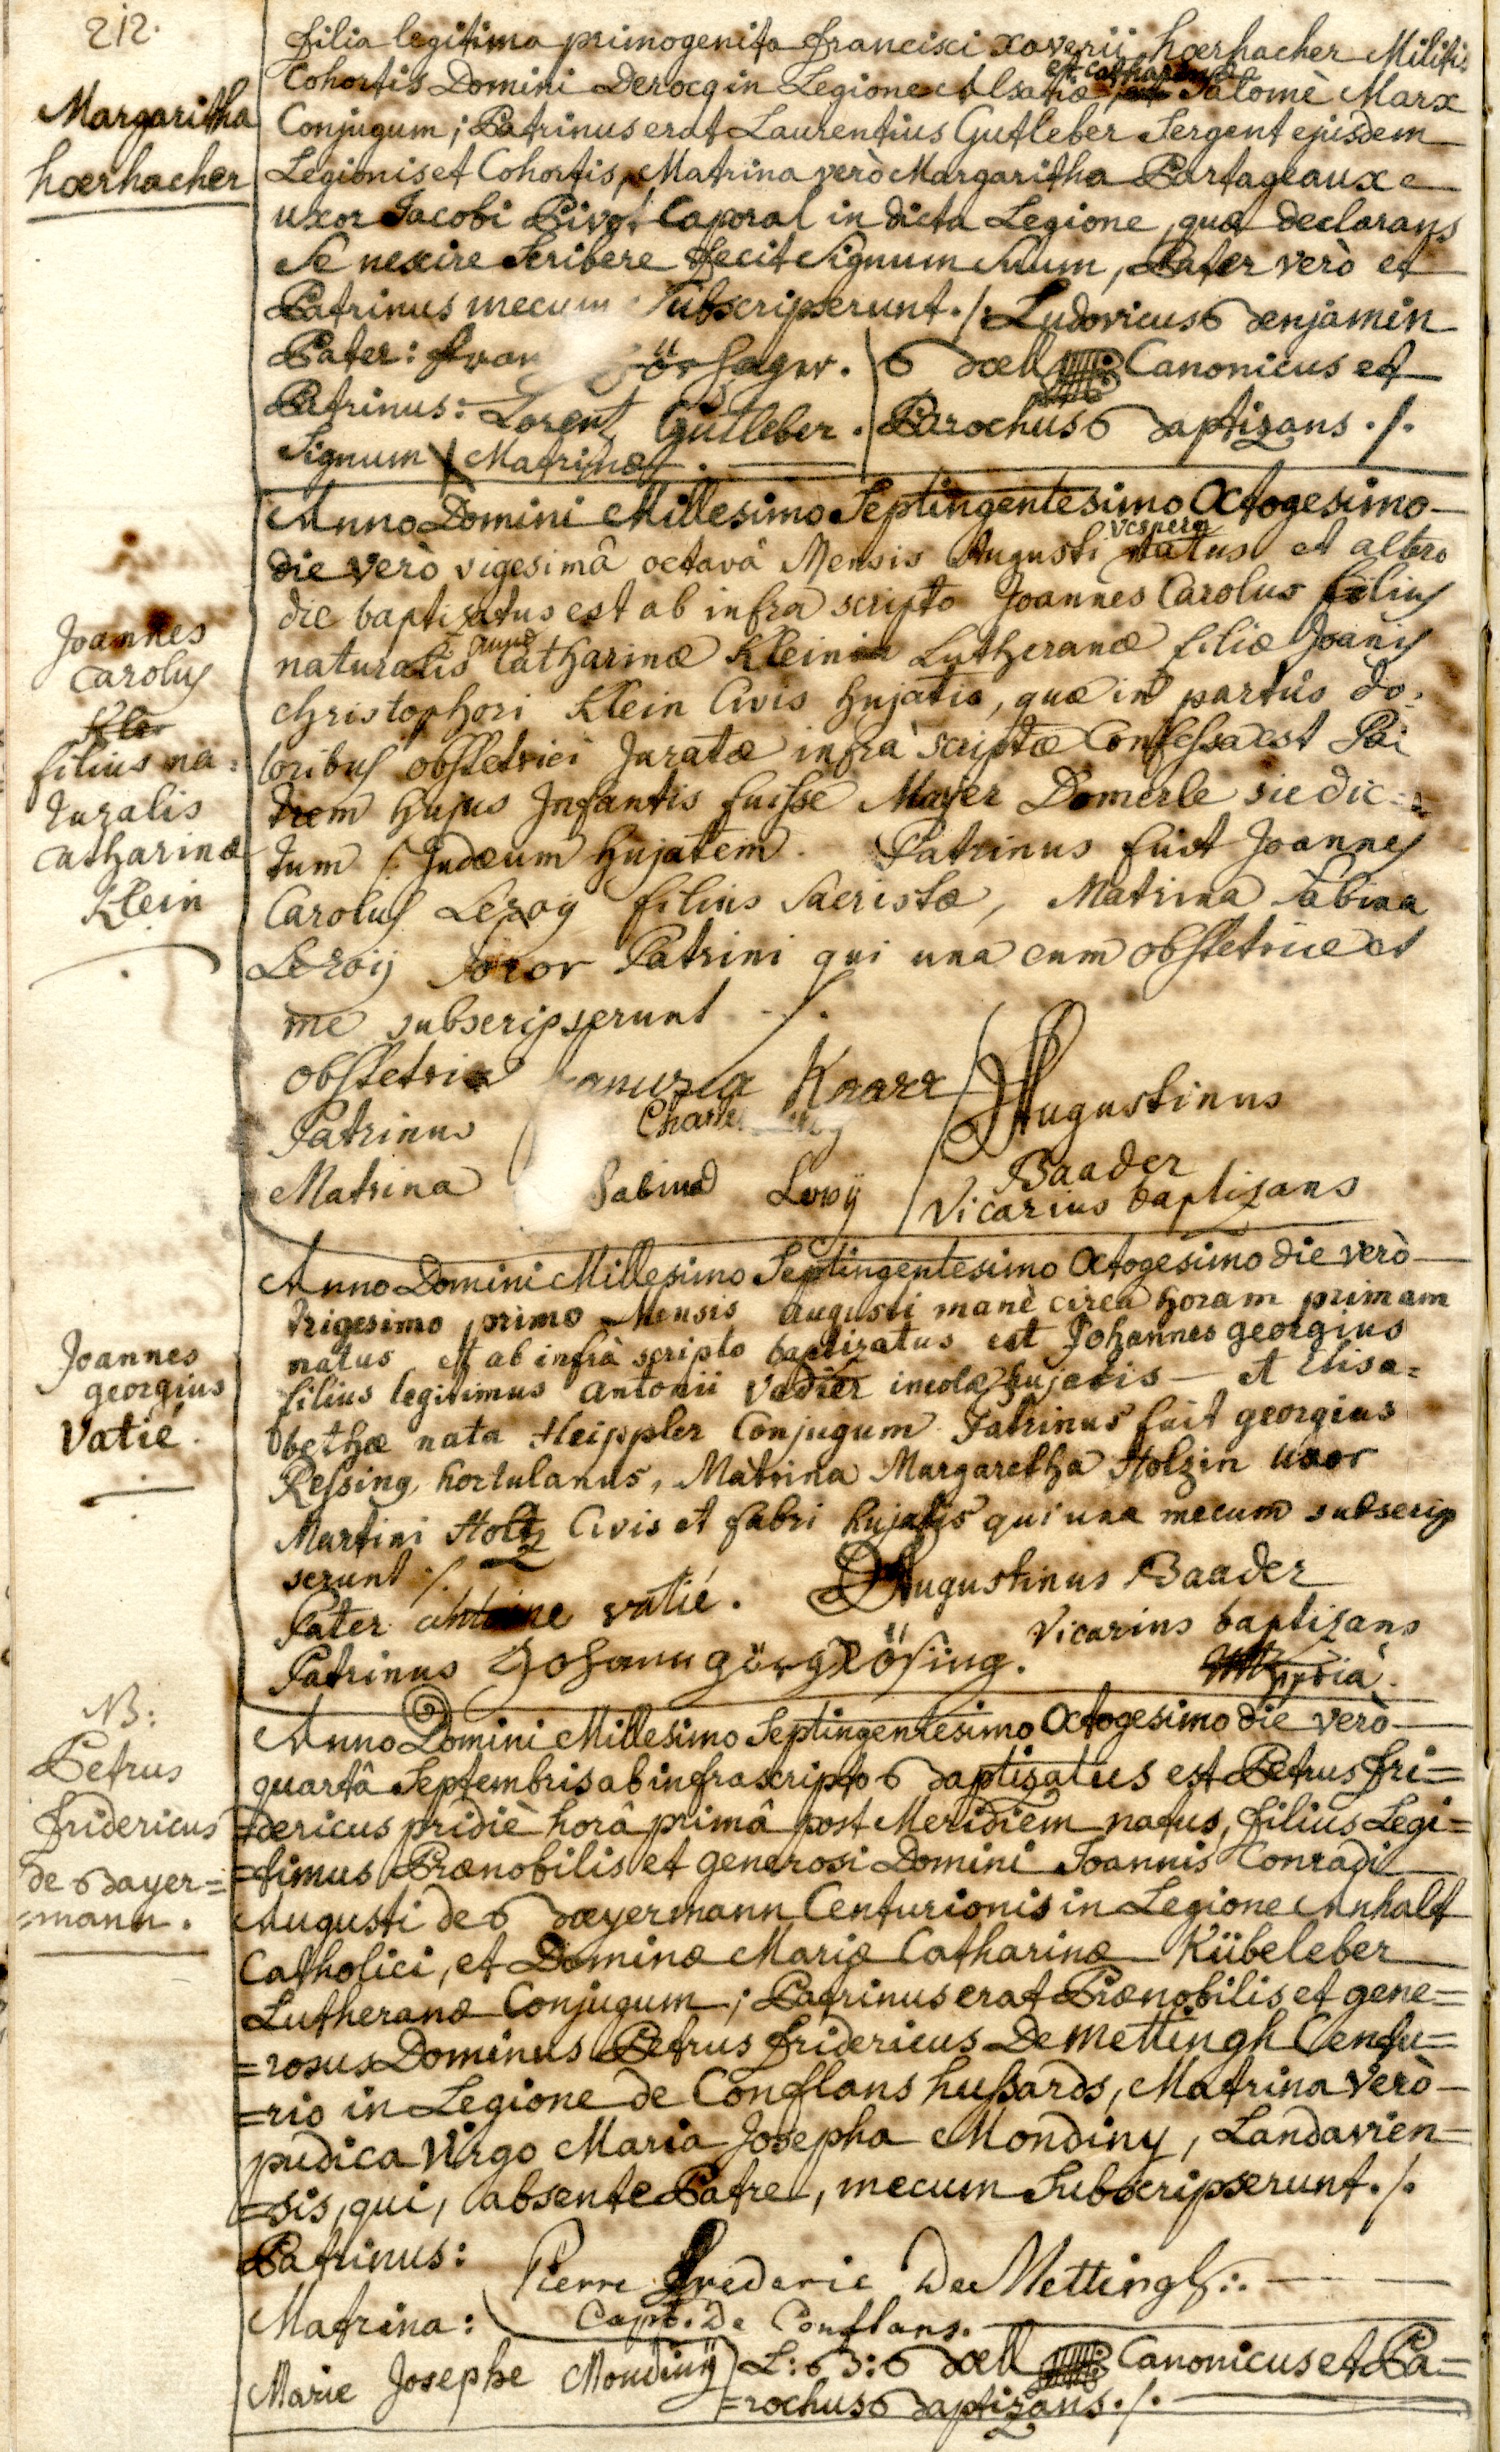 212.
Margaritha
hœrhacher
filia legitima primogenita francisci Xaverii hœrhacher Militis
Cohortis Domini Derocq in Legione Alsatiæ et catharinæ Salomè Marx
Conjugum; Patrinus erat Laurentius Gutleber Sergent ejusdem
Legionis et Cohortis, Matrina verò Margaritha Partageaux
uxor Jacobi Pivot Caporal in dicta Legione, quæ declarans
Se nescire Scribere fecit Signum suum, Pater verò et
Patrinus mecum Subscripserunt ./. Ludovicus Benjamin
Pater: Bœll Canonicus et
Patrinus: Lorentz Gutleber. Parochus Baptizans ./.
Signum Matrinæ.
Joannes
Carolus
Kle
filius na:
turalis
Catharinæ
Klein
Anno Domini Millesimo Septingentesimo Octogesimo
die verò vigesimâ octavâ Mensis Augusti vespera natus et altero
die baptizatus est ab infra scripto Joannes Carolus filius
naturalis Annæ Catharinæ Klein Lutheranæ filiæ Joanis
christophori Klein Civis hujatis, quæ in partûs do:
loribus obstetrici Juratæ infrà scriptæ Confessa est Pa:
trem hujus Infantis fuisse Mayer Domerle sic dic:
tum /: Judæum hujatem. Patrinus fuit Joannes
Carolus Leroy filius Sacristæ, Matrina Sabina
Leroij Soror Patrini qui una cum obstetrice et
me subscripserunt ./.
obstetrix Knarr Augustinus
Patrinus Charles
Matrina Sabina Leroij Baader
Vicarius baptizans
Joannes
georgius
Vatié.
Anno Domini Millesimo Septingentesimo Octogesimo die verò
trigesimo primo Mensis augusti manè circa horam primam
natus et ab infrà scripto baptizatus est Johannes georgius
filius legitimus antonii Vadier incolæ hujatis — et Elisa=
bethæ nata Heippler Conjugum. Patrinus fuit georgius
Ressing hortulanus, Matrina Margaretha Holzin uxor
Martini Holtz Civis et fabri hujatis qui una mecum subscrip
serunt ./.
Pater antoine vatié. Augustinus Baader
Vicarius baptizans
Patrinus Johann görg Rösing. Mppria.
NB:
Petrus
fridericus
de Bayer=
=mann.
Anno Domini Millesimo Septingentesimo Octogesimo die verò
quartâ Septembris ab infrascripto Baptizatus est Petrus fri=
=dericus pridiè horâ primâ post Meridiem natus, filius Legi=
=timus Prænobilis et generosi Domini Joannis Conradi
Augusti de Bæyermann Centurionis in Legione Anhalt
Catholici, et Dominæ Mariæ Catharinæ Kübeleber
Lutheranæ Conjugum; Patrinus erat Prænobilis et gene=
=rosus Dominus Petrus fridericus De Mettingh Centu=
=rio in Legione de Conflans hußards, Matrina verò
pudica Virgo Maria Josepha Mondiny, Landavien=
=sis, qui, absente Patre, mecum Subscripserunt ./.
Patrinus: Pierre Frederic De Mettingh:.
Matrina: Capt. De Conflans.
Marie Josephe Mondinÿ L: B: Bœll Canonicus et Pa=
=rochus Baptizans ./.